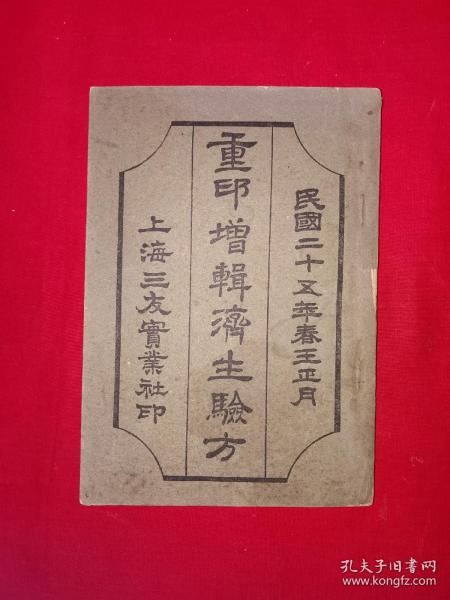 民國二十五年春王正月
重印增輯濟生驗方
上海三友實業社印
孔夫子旧书网
www.kongfz.com